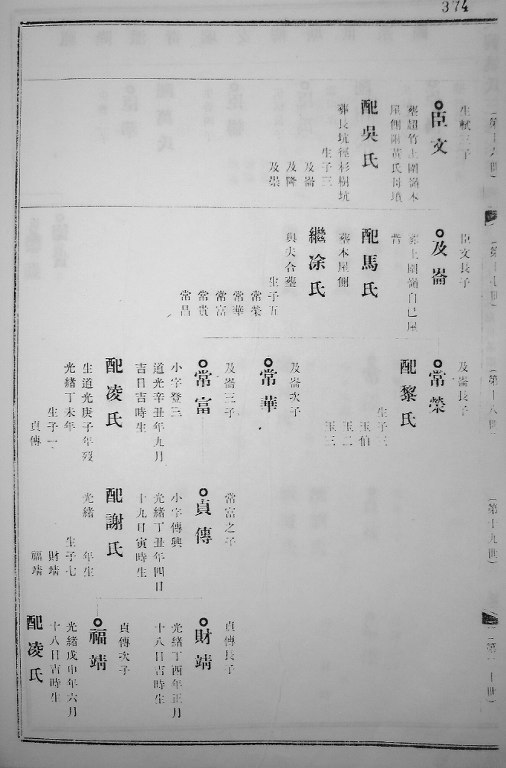 374
(第十六世)
生賦三子
臣文
葬超竹上圍嶺本
屋側兩黃氏同墳
配吳氏
葬長坑徑杉樹坑
生子三
及崙
及隆
及崇
臣文長子
及崙
葬上圍嶺自己屋
背
配馬氏
葬本屋側
繼凃氏
與夫合葬
生子五
常榮
常華
常富
常貴
常昌
(第十八世)
及崙長子
常榮
配黎氏
生子三
玉伯
玉二
玉三
及崙次子
常華
及崙三子
常富
小字登三
道光辛丑年九月
吉日吉時生
配凌氏
生道光庚子年歿
光緒丁未年
生子一
貞傳
(第十九世)
常富之子
貞傳
小字傳興
光緒丁丑年四日
十九日寅時生
配謝氏
光緒 年生
生子七
財靖
福靖
(第二十世)
貞傳長子
財靖
光緒丁酉年正月
十八日吉時生
貞傳次子
福靖
光緒戊申年六月
十八日吉時生
配凌氏